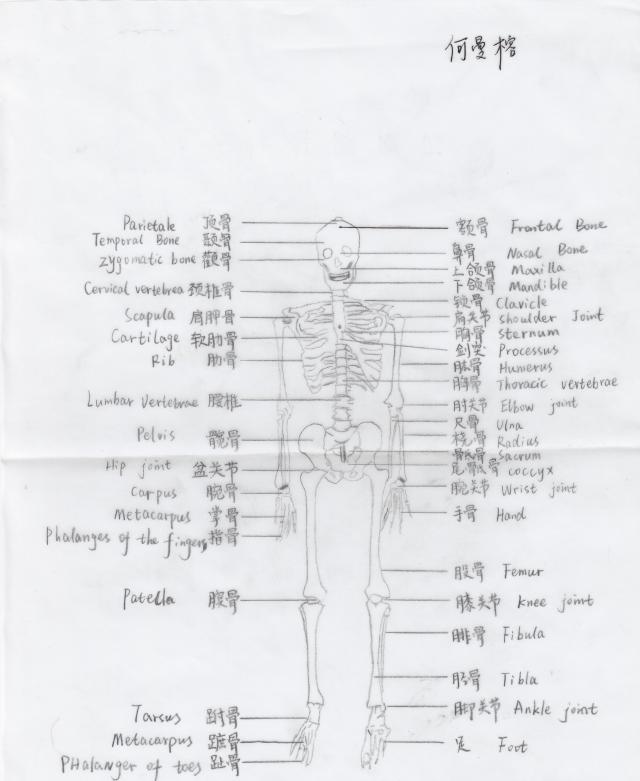 何曼榕
Parietale 顶骨
Temporal Bone 颞骨
Zygomatic bone 颧骨
Cervical vertebrea 颈椎骨
Scapula 肩胛骨
Cartilage 软肋骨
Rib 肋骨
Lumbar Vertebrae 腰椎
Pelvis 髋骨
Hip joint 盆关节
Carpus 腕骨
Metacarpus 掌骨
Phalanges of the fingers 指骨
Patella 腹骨
Tarsus 跗骨
Metacarpus 蹠骨
PHalanger of toes 趾骨
额骨 Frontal Bone
鼻骨 Nasal Bone
上颌骨 Maxilla
下颌骨 Mandible
锁骨 Clavicle
肩关节 shoulder Joint
胸骨 sternum
剑突 Processus
肱骨 Humerus
胸骨 Thoracic vertebrae
肘关节 Elbow joint
尺骨 Ulna
桡骨 Radius
骶骨 Sacrum
尾骶骨 coccyx
腕关节 Wrist joint
手骨 Hand
股骨 Femur
膝关节 knee joint
腓骨 Fibula
胫骨 Tibla
脚关节 Ankle joint
足 Foot